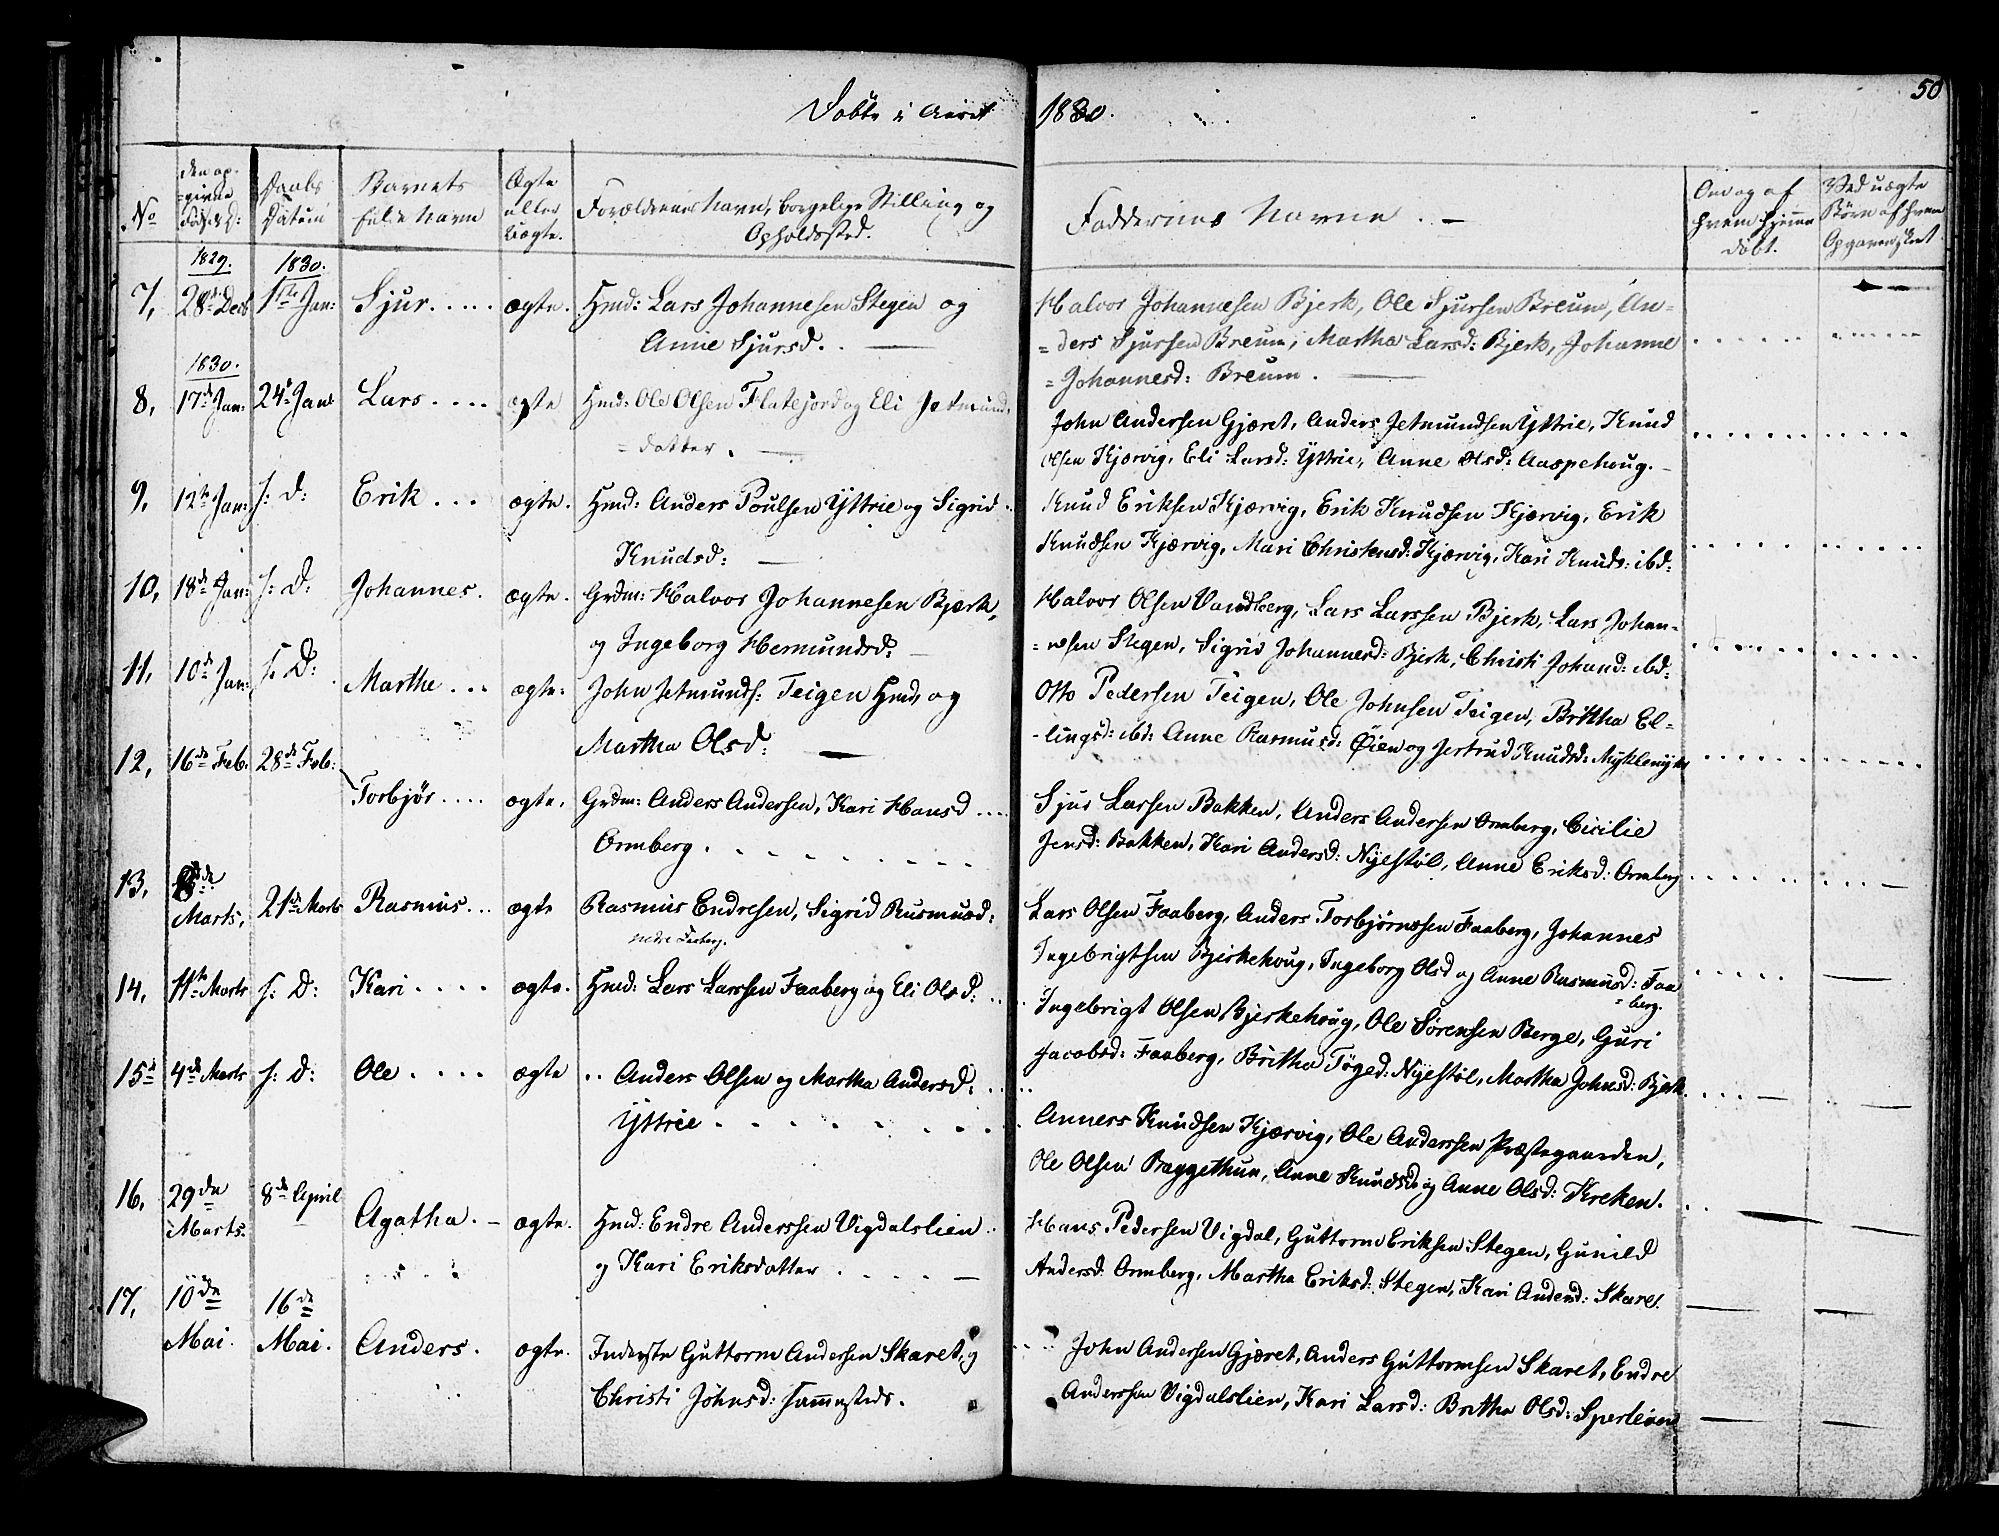 50
Døbte i Aaret 1830.
No
den op-
=givne
Føds. D:
Daabs
Datum
Barnets
fulde Navn
Ægte
eller
Uægte.
Forældrenes Navn, borgelige Stilling og
Opholdssted.
Faddernes Navne. -
Om og af
hvem hjemme
døbt.
Ved uægte
Børn af hvem
Opgaven skeet
1829. 1830.
7, 28de Decb 1ste Jan: Sjur..... ægte. Hmd: Lars Johannesen Stegen og
Anne Sjursd. . —
Halvor Johannesen Bjerk, Ole Sjursen Breum, An-
=ders Sjursen Breum, Martha Larsd: Bjerk, Johanne
=Johannesd: Breum. —
1830.
8, 17de Jan: 24de Jan: Lars.... ægte Hmd: Ole Olsen Flatejord og Eli Jetmund,
=datter. —
John Andersen Gjæret, Anders Jetmundsen Yttrie, Knud
Olsen Kjærvig, Eli Larsd: Yttrie, Anne Olsd: Aaspehoug. -
9, 12te Jan: s: D: Erik ... ægte. Hmd: Anders Poulsen Yttrie og Sigrid
Knudsd: —
Knud Eriksen Kjærvig, Erik Knudsen Kjærvig, Erik
Knudsen Kjærvig, Mari Christensd: Kjærvig, Kari Knuds: ibd:
10, 18de Jan: s: D: Johannes. ægte. Grdm: Halvor Johannesen Bjærk,
og Ingeborg Hermundsd: —
Halvor Olsen Vandberg, Lars Larssen Bjerk, Lars Johan-
=nesen Stegen, Sigrid Johannesd: Bjerk, Christi Johand: ibd:
11, 10de Jan: s: D: Marthe ... ægte: John Jetmunds: Teigen Hmd, og
Martha Olsd: —
Otto Pedersen Teigen, Ole Johnsen Teigen, Brittha El-
-lingsd: ibd: Anne Rasmusd: Øien og Jertrud Knudsd: Myklemyhr
12, 16de Feb: 28de Feb: Torbjør.... ægte. Grdm: Anders Andersen, Kari Hansd ....
Ormberg.
Sjur Larsen Bakken, Anders Andersen Ormberg, Cicilie
Jensd: Bakken, Kari Andersd: Nyestøl, Anne Eriksd: Ormberg
13, 8de
Marts, 21de Marts Rasmus... ægte Rasmus Endresen, Sigrid Rusmusd:
nedre Faaberg.
Lars Olsen Faaberg, Anders Torbjørnssen Faaberg, Johannes
Ingebrigtsen Bjerkehoug, Ingeborg Olsd og Anne Rasmusd: Faa
=berg.
14, 11te Marts s: D: Kari .... ægte. Hmd: Lars Larssen Faaberg og Eli Olsd: ..
Ingebrigt Olsen Bjerkehoug, Ole Sørensen Berge, Guri
Jacobsd: Faaberg, Brittha Tøged: Nyestøl, Martha Johnsd: Bjerk.
15d 4de Marts s: D: Ole .... ægte .. Anders Olsen og Martha Andersd:
Yttrie
Anners Knudsen Kjærvig, Ole Anderssen Præstegaarden,
Ole Olsen Baggethun, Anne Knudsd og Anne Olsd: Kreken.
16, 29de
Marts. 8de April Agatha. - ægte. Hmd: Endre Anderssen Vigdalslien
og Kari Eriksdatter
Hans Pedersen Vigdal, Guttorm Eriksen Stegen, Gunild
Andersd. Ormberg, Martha Eriksd: Stegen, Kari Andersd: Skaret.
17, 10de
Mai. 16de
Mai. Anders. ægte. Inderste Guttorm Andersen Skaret, og
Christi Johnsd: sammesteds.
John Andersen Gjæret, Anders Guttormsen Skaret, Endre
Anderssen Vigdalslien, Kari Larsd: Britha Olsd: Sperleven